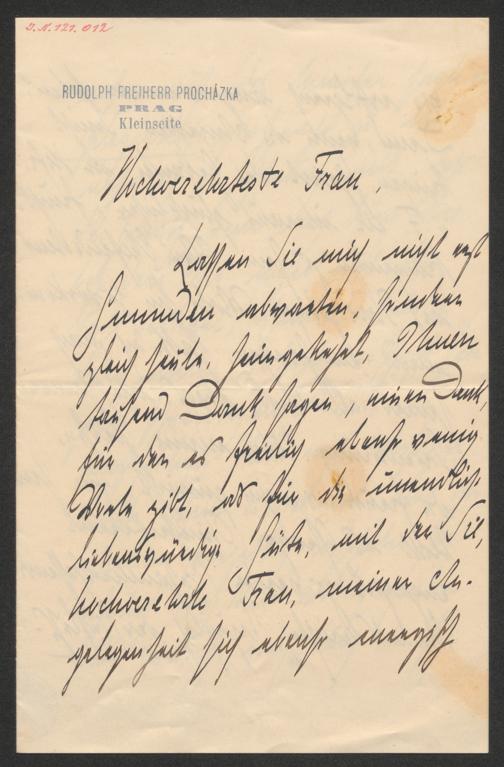 I.N. 121.012
RUDOLPH FREIHERR PROCHÁZKA
PRAG
Kleinseite
Hochverehrteste Frau,
Lassen Sie mich nicht erst
Gmunden abwarten, sondern
gleich heute, heimgekehrt, Ihnen
tausend Dank sagen, einen Dank,
für den es freilich ebenso wenig
Worte gibt, als für die unendlich
liebenswürdige Güte, mit der Sie,
hochverehrte Frau, meiner An-
gelegenheit sich ebenso energisch